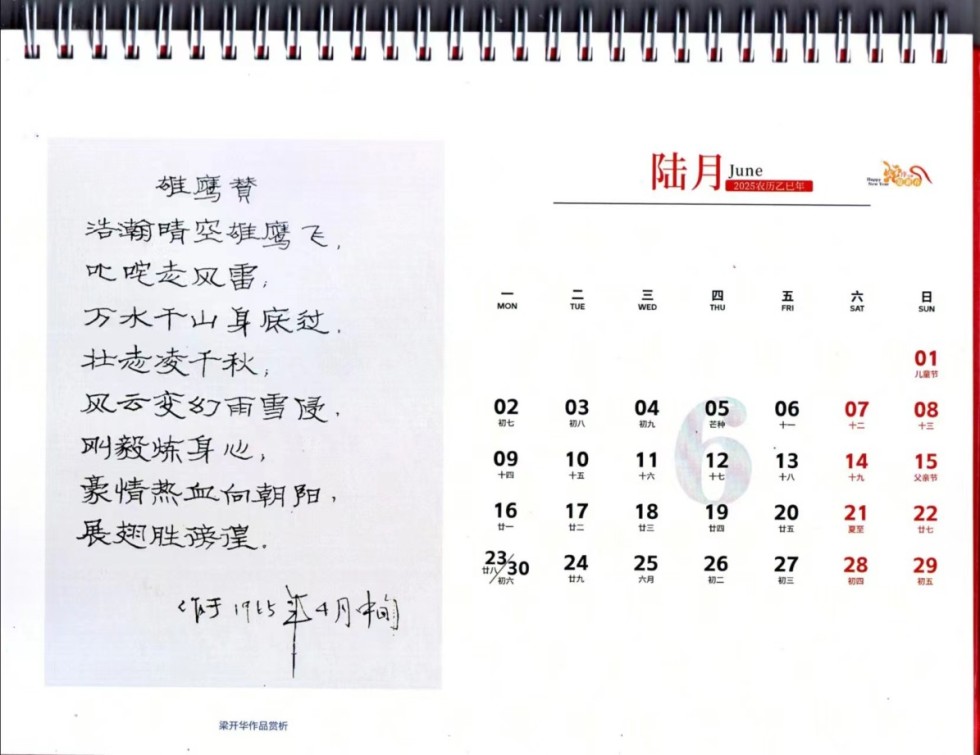 雄鹰赞
浩瀚晴空雄鹰飞,
叱咤走风雷;
万水千山身底过,
壮志凌千秋;
风云变幻雨雪侵,
刚毅炼身心;
豪情热血向朝阳,
展翅胜滂湟.
作于1965年4月中旬
梁开华作品赏析
陆月 June
2025农历乙巳年
Happy New Year
一 二 三 四 五 六 日
MON TUE WED THU FRI SAT SUN
01
儿童节
6
02 03 04 05 06 07 08
初七 初八 初九 芒种 十一 十二 十三
09 10 11 12 13 14 15
十四 十五 十六 十七 十八 十九 父亲节
16 17 18 19 20 21 22
廿一 廿二 廿三 廿四 廿五 夏至 廿七
23/30 24 25 26 27 28 29
廿八/初六 廿九 六月 初二 初三 初四 初五